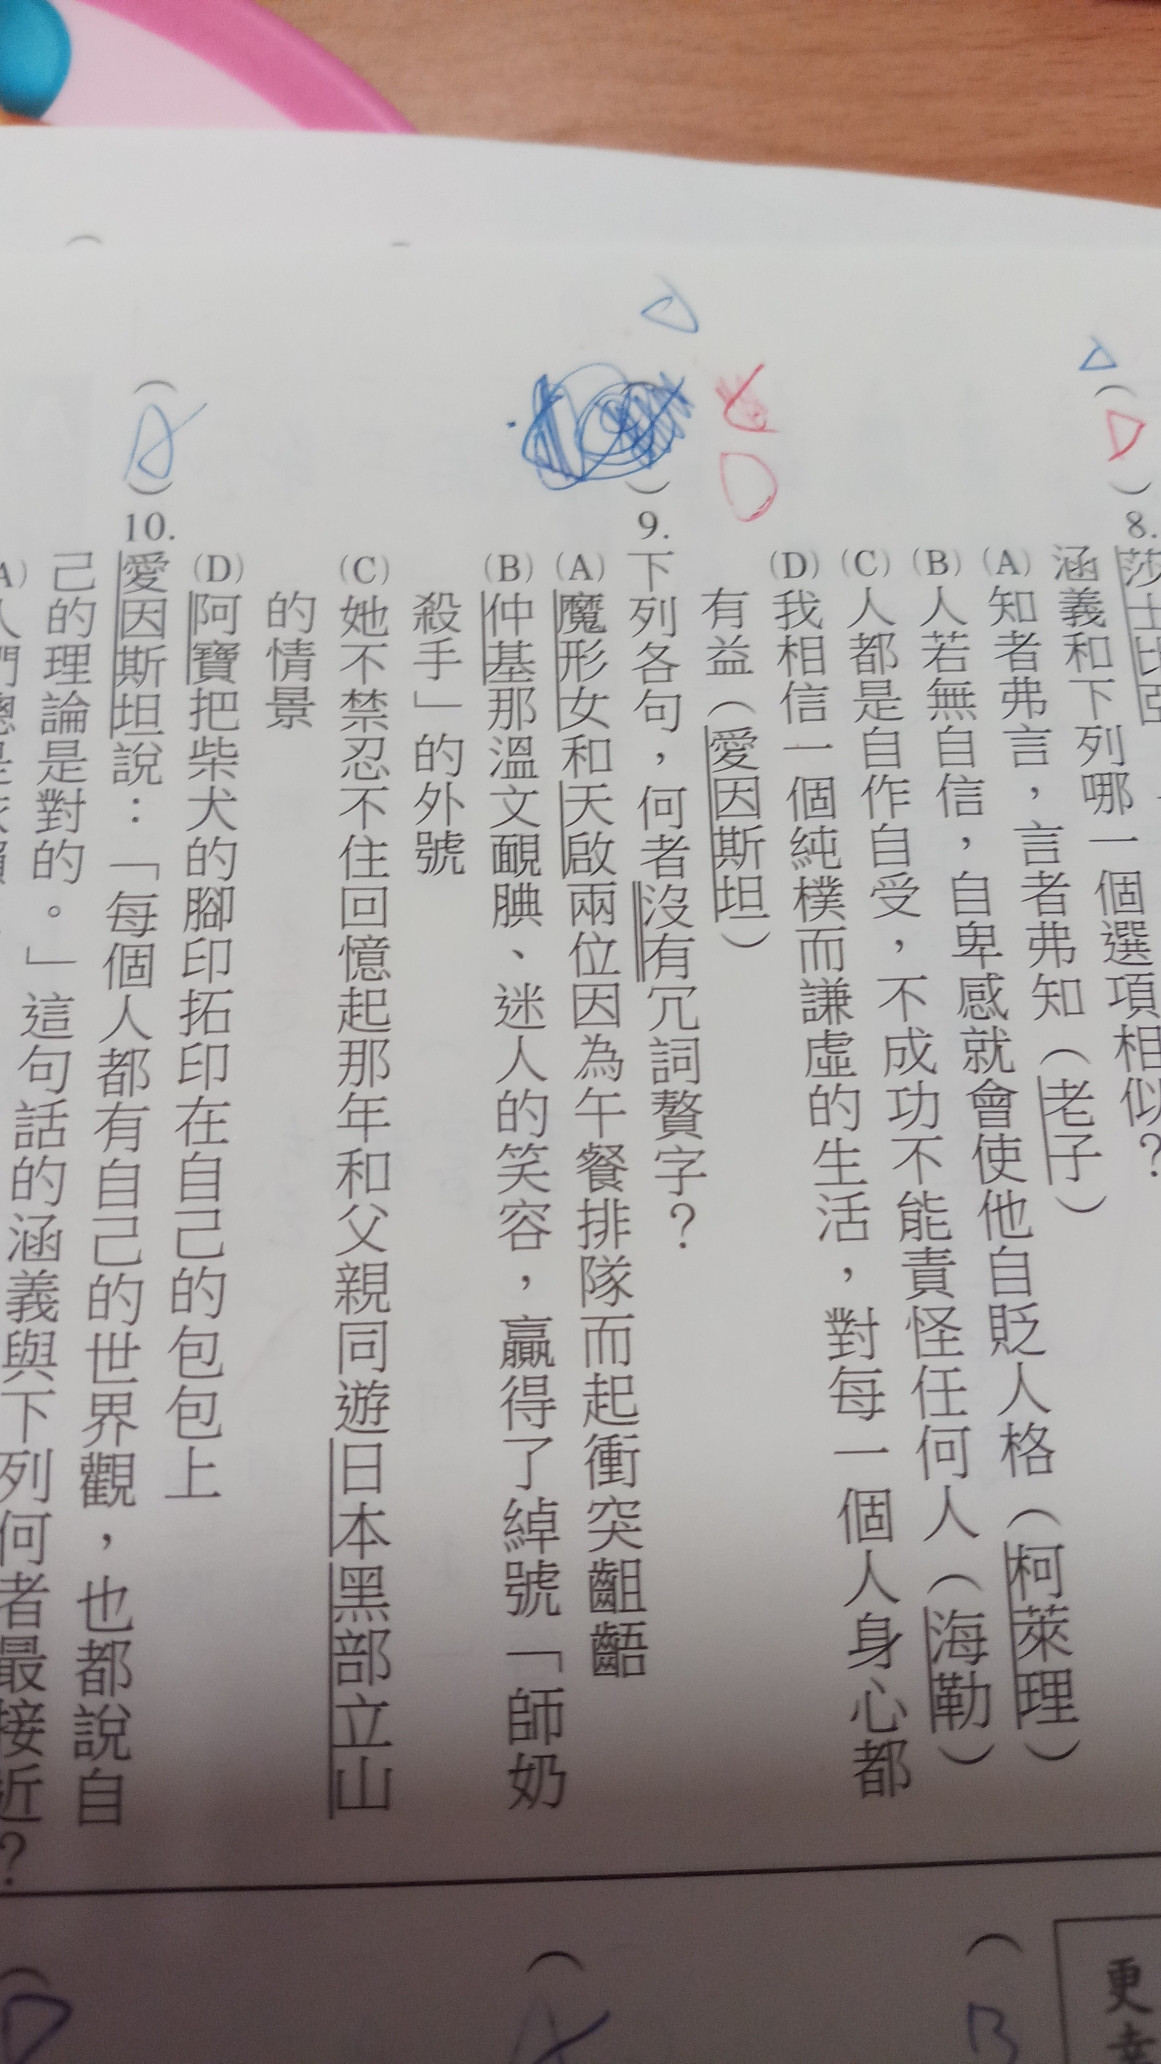 8. 莎士比亞
涵義和下列哪一個選項相似？
(A)知者弗言，言者弗知（老子）
(B)人若無自信，自卑感就會使他自貶人格（柯萊理）
(C)人都是自作自受，不成功不能責怪任何人（海勒）
(D)我相信一個純樸而謙虛的生活，對每一個人身心都
有益（愛因斯坦）
D
D
D
D
（ ）9. 下列各句，何者沒有冗詞贅字？
(A)魔形女和天啟兩位因為午餐排隊而起衝突齟齬
(B)仲基那溫文靦腆、迷人的笑容，贏得了綽號「師奶
殺手」的外號
(C)她不禁忍不住回憶起那年和父親同遊日本黑部立山
的情景
(D)阿寶把柴犬的腳印拓印在自己的包包上
（A）10. 愛因斯坦說：「每個人都有自己的世界觀，也都說自
己的理論是對的。」這句話的涵義與下列何者最接近？
A)人們總是依賴
更幸
（B
（A
（D